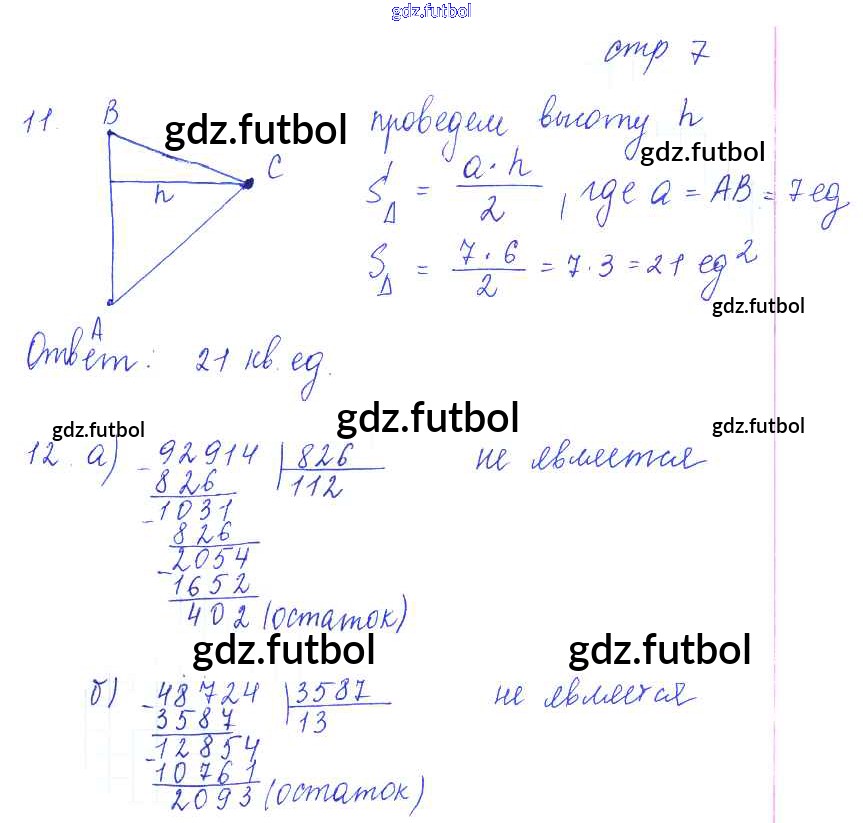 gdz.futbol
стр 7
11. B gdz.futbol проведем высоту h
gdz.futbol
C h S△ = a · h / 2, где a = AB = 7 ед
S△ = 7 · 6 / 2 = 7 · 3 = 21 ед²
gdz.futbol
A
Ответ: 21 кв. ед.
gdz.futbol
gdz.futbol gdz.futbol
12. а) 92914 | 826 не является
826 112
1031
826
2054
1652
402 (остаток)
gdz.futbol gdz.futbol
б) 48724 | 3587 не является
3587 13
12854
10761
2093 (остаток)